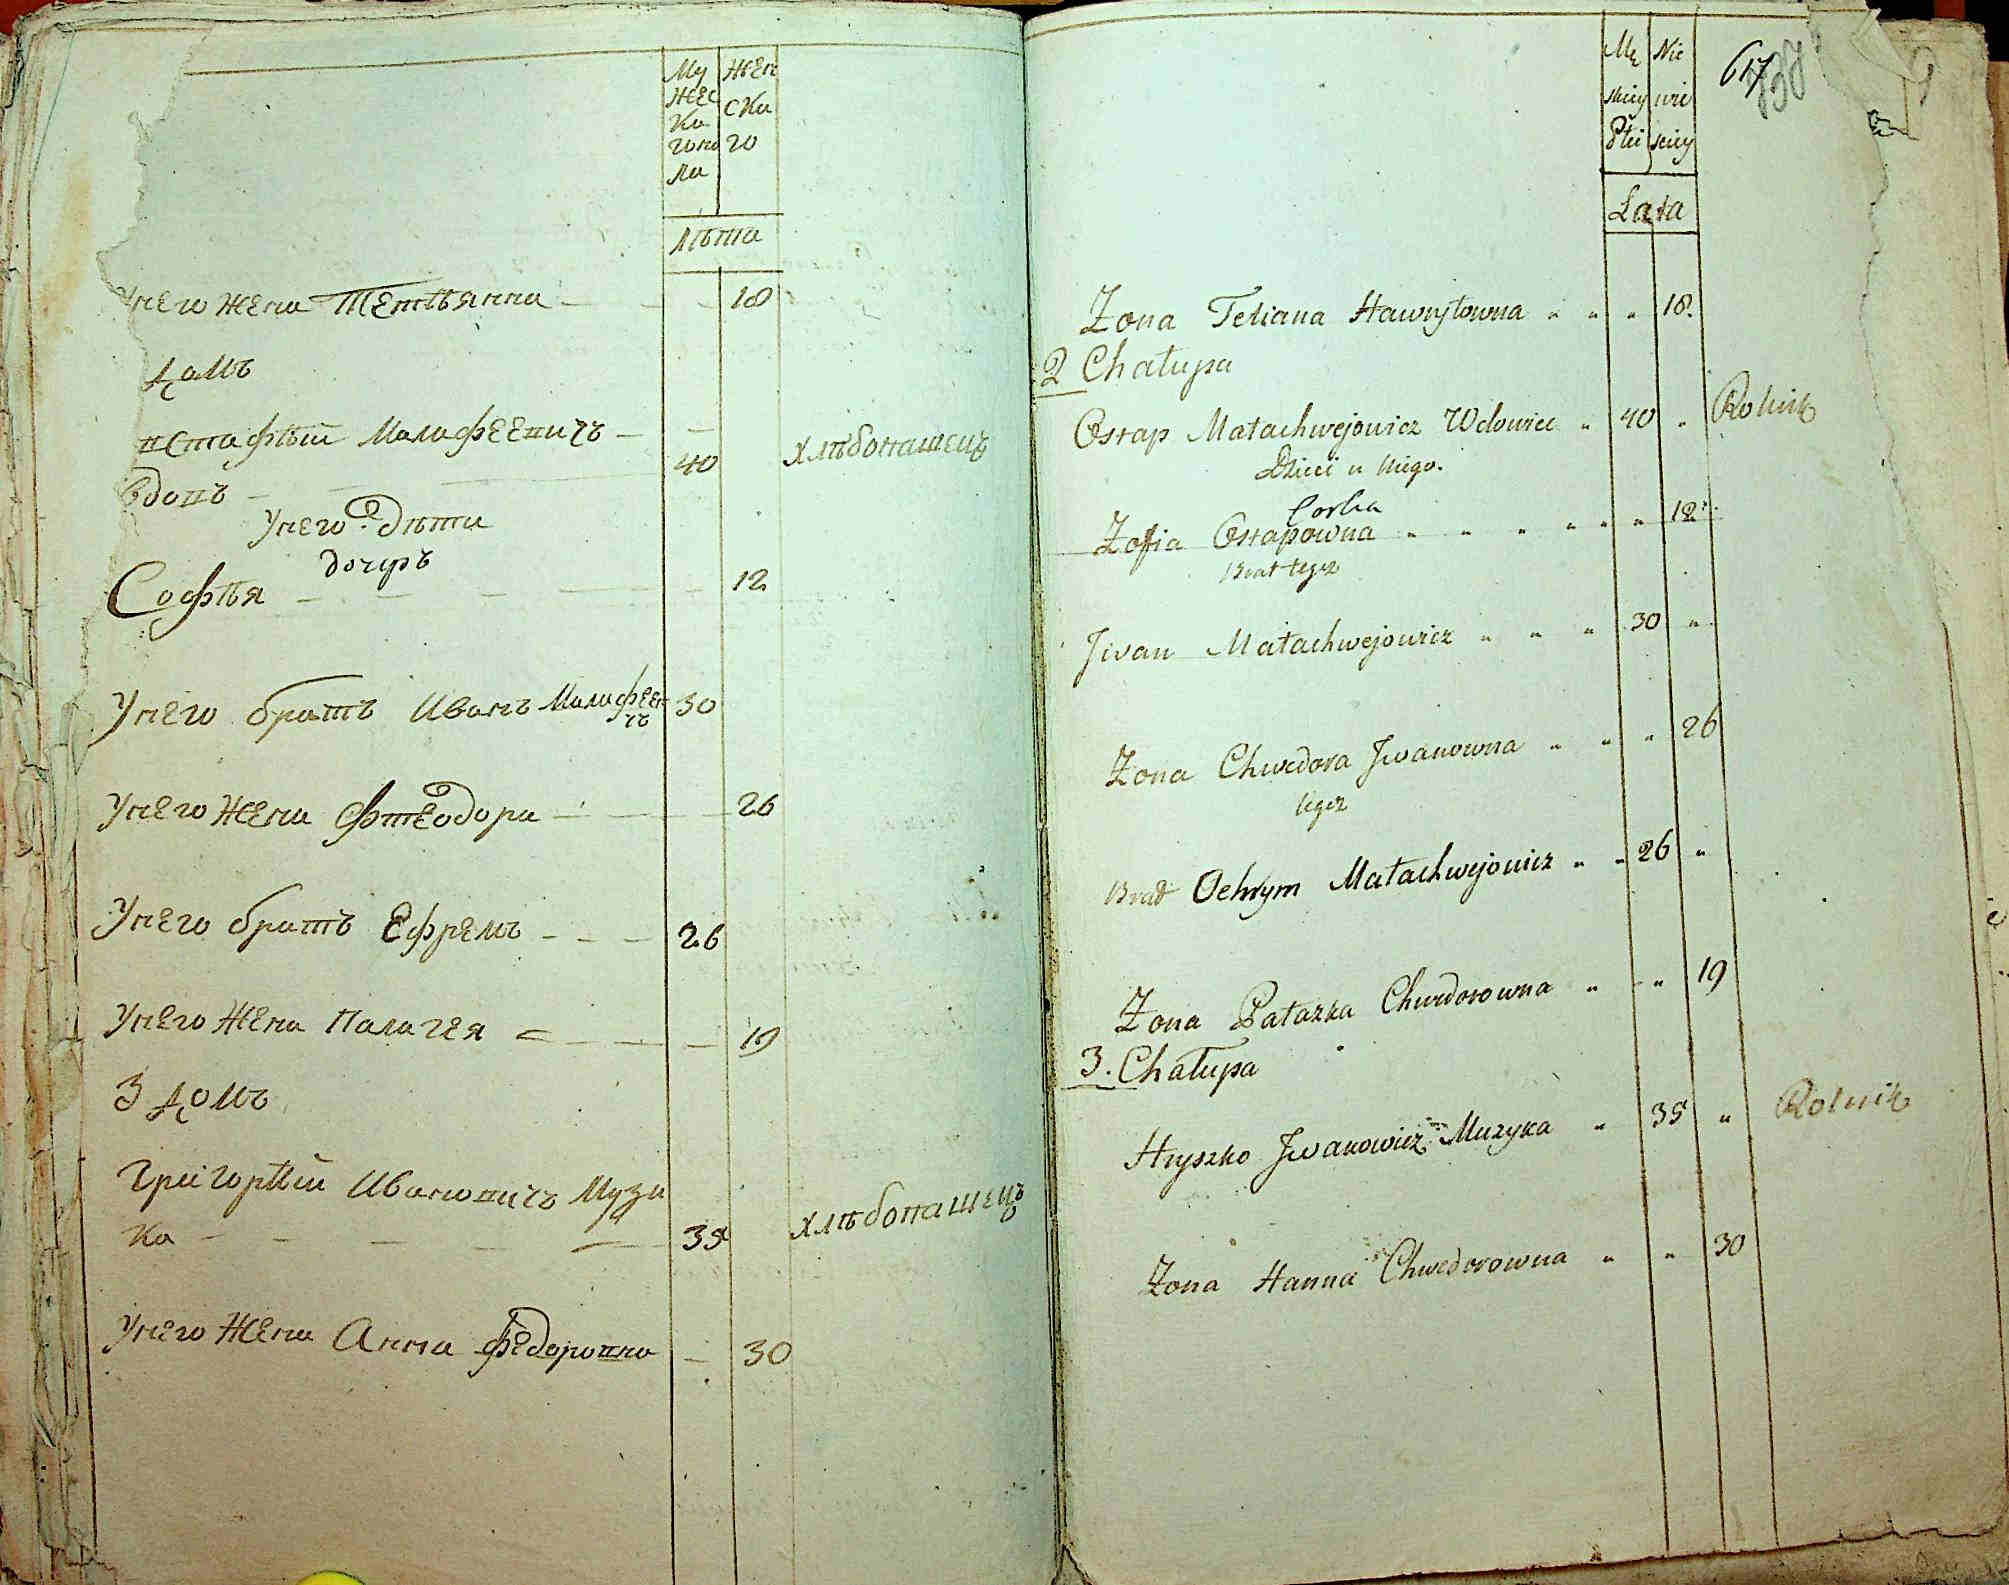 Му
жес
ка
гопо
ла
Жен
ска
го
лѣта
Унего жена Тетіянна — — — 18
домъ
встафѣй Малафеевичъ — —
Вдовъ — — 40 хлѣбопашецъ
Унего дѣти
дочеръ
Софѣя — — — — — 12
Унего братъ Иванъ Малафееви
чъ 30
Унего жена Фтеодора — — — 26
Унего братъ Ефремъ — — — 26
Унего жена Палагея — — — — 19
3 домъ
Григорѣй Ивановичъ Музи
ка — — — — — 35 хлѣбопашецъ
Унего жена Анна Федоровна — 30
Mę
skiey
Płci
Nie
wie
sciey
Lata
617
Zona Teliana Hawryłowna " " " 18.
2 Chałupa
Ostap Małachwejowicz Wdowiec " 40 " Rolnik
Dzieci u niego.
Corka
Zofia Ostapowna " " " " " " 12.
Brat tegoz
Jwan Małachwejowicz " " " 30 "
Zona Chwedora Jwanowna " " " 26
tegoz
Brad Ochrym Małachwejowicz " " 26 "
Zona Pałazka Chwedorowna " " " 19
3. Chałupa
Hryszko Jwanowicz Muzyka " 35 " Rolnik
Zona Hanna Chwedorowna " " 30